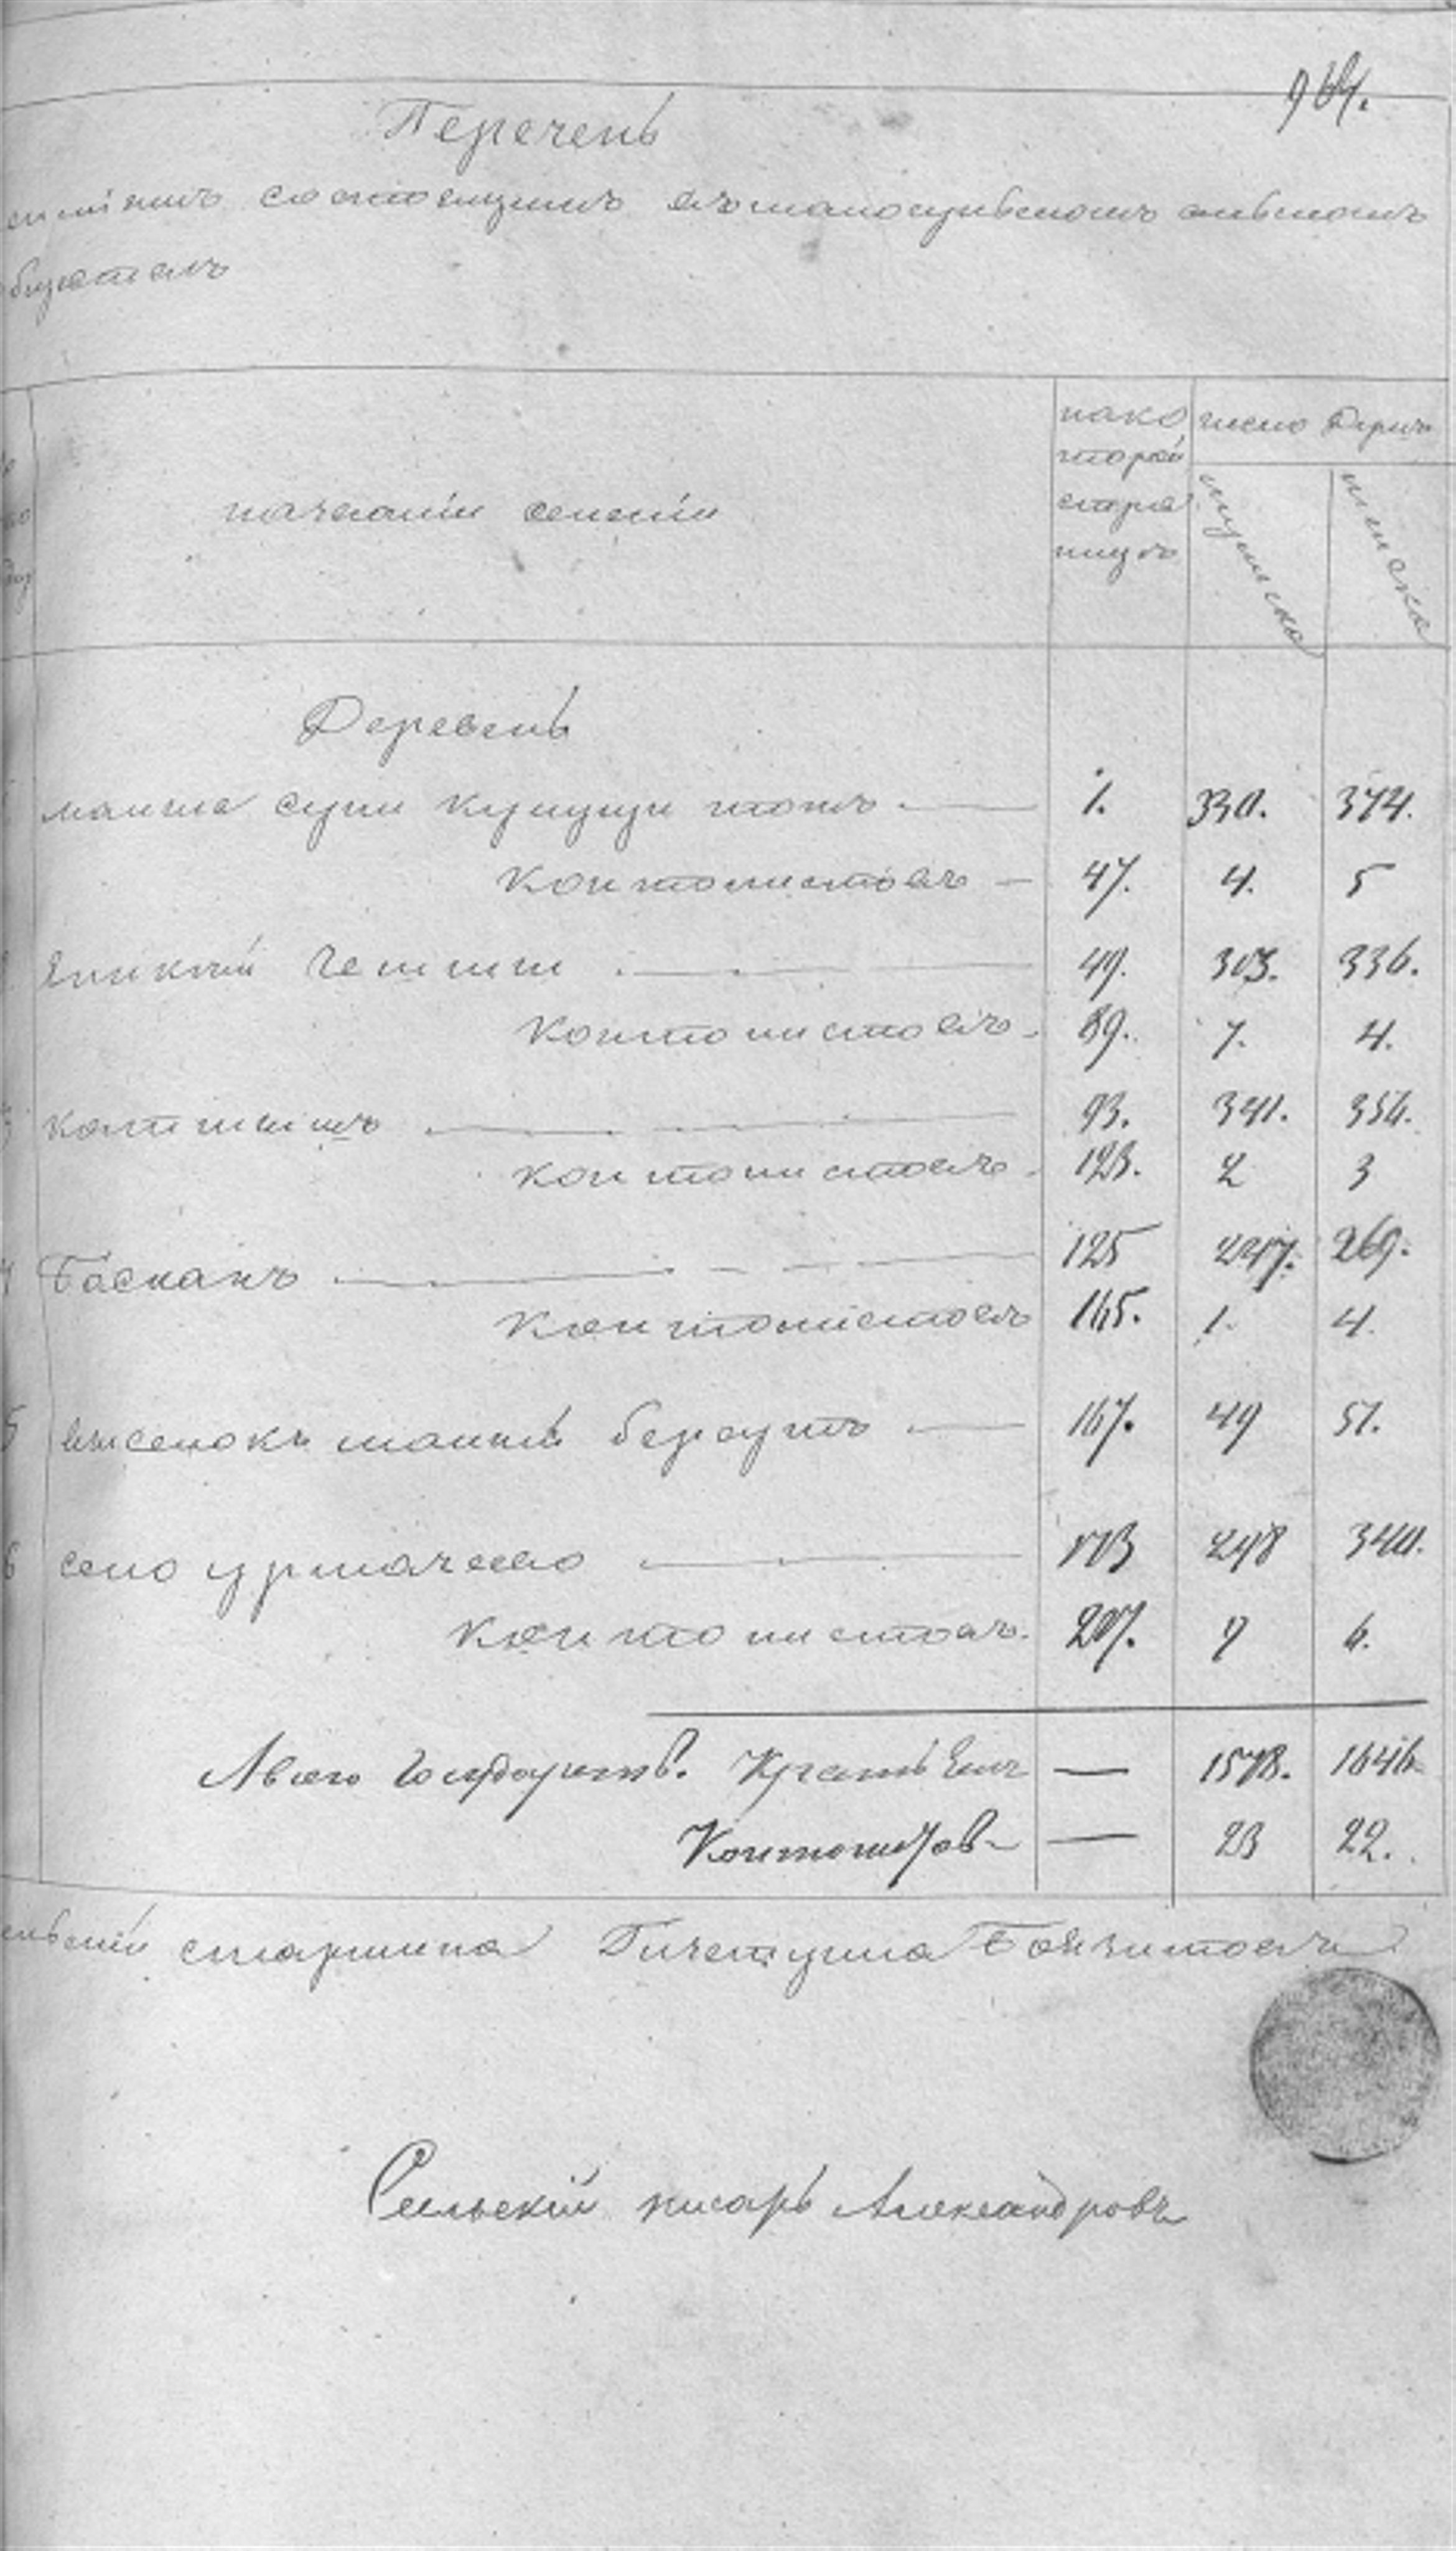 964.
Перечень
состоящимъ въ малосунскомъ сельскомъ
обществъ
названіи селеніи
на ко
торой
стра
ницъ
число душъ
мужска
женска
Деревень
малыя суни кушуци тожъ 1. 330. 374.
контонистовъ 47. 4. 5
49. 303. 336.
контонистовъ 89. 7. 4.
93. 341. 354.
контонистовъ 123. 2 3
4 Басканъ 125 247. 269.
контонистовъ 165. 1. 4.
5 выселокъ малый берсутъ 167. 49 51.
6 село урмачево 173 298 340.
контонистовъ 207. 9 6.
Всего Государств. Крестьянъ — 1578. 1646
Контонистов — 23 22.
сельскій старшина
Сельскій писарь Александровъ